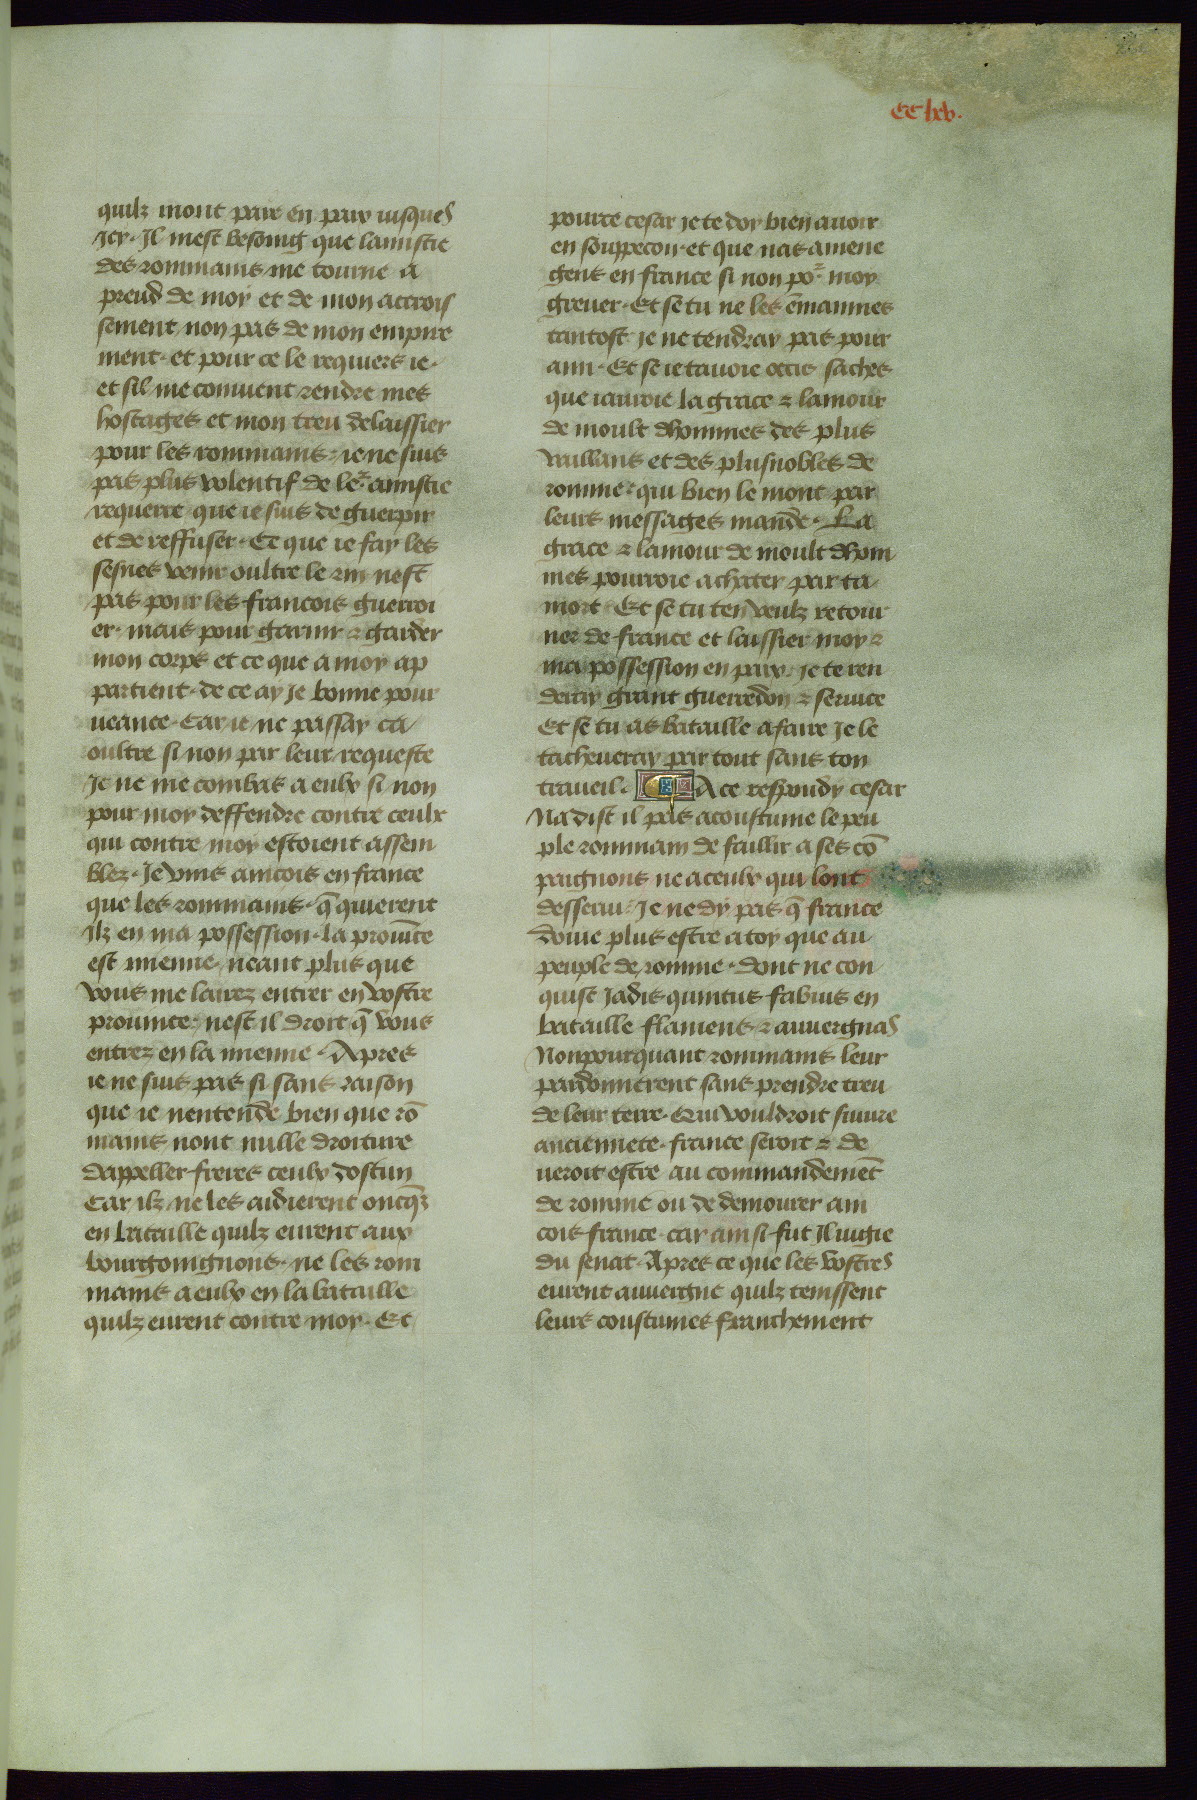 CC lxv.
quilz mont paie en paix iusques
Icy. Il mest besoing que lamistie
des rommains me tourne a
preud de moy et de mon accrois
sement non pas de mon empire
ment. et pour ce le requiers ie.
et sil me conuient rendre mes
hostages et mon treu delaissier
pour les rommains. ie ne suis
pas plus volentif de ler amistie
requerre que ie suis de guerpir
et de reffuser. Ce que ie fay les
sesnes venir oultre le rin nest
pas pour les francois guerroi
er. mais pour garnir & garder
mon corps et ce que a moy ap
partient. de ce ay Je bonne pour
ueance. Car ie ne passay ca
oultre si non par leur requeste
Je ne me combas a eulx si non
pour moy deffendre contre ceulx
qui contre moy estoient assem
blez. Je vins aincois en france
que les rommains. q̄ quierent
ilz en ma possession. la prouīce
est mienne. neant plus que
vous me lairez entrer en vostre
prouince. nest il droit q̄ vous
entrez en la mienne. Apres
ie ne suis pas si sans raison
que ie nentende bien que rō
mains nont nulle droiture
dappeller freres ceulx dostun
Car ilz ne les aidierent oncq̄s
en bataille quilz eurent aux
bourgoingnons. ne les rom
mains a eulx en la bataille
quilz eurent contre moy. Et
pource cesar je te doy bien auoir
en souppecon. et que nas amene
gens en france si non por moy
greuer. Et se tu ne les ēmainnes
tantost je ne tendray pas pour
ami. Et se ie tauoie occis saches
que iauroie la grace & lamour
de moult dhommes des plus
vaillans et des plus nobles de
romme. qui bien le mont par
leurs messages mande. La
grace & lamour de moult dhom
mes pourroie achater par ta
mort. Et se tu ten veulz retour
ner de france et laissier moy &
ma possession en paix. je te ren
deray grant guerredon & seruice
Et se tu as bataille a faire Je le
tacheueray par tout sans ton
traueil. A ce respondy cesar
Na dist il pas acoustume le peu
ple rommain de faillir a ses cō
paignons ne a ceulx qui lont
desserui. Je ne dy pas q̄ france
doiue plus estre a toy que au
peuple de romme. dont ne con
quist Jadis quintus fabius en
bataille flamens & auuergnas
Nonpourquant rommains leur
pardonnerent sans prendre treu
de leur terre. Qui vouldroit suiure
anciennete. france seroit & de
ueroit estre au commandemēt
de romme ou de demourer ain
cois france. car ainsi fut Il iugie
du senat. Apres ce que les vostres
eurent auuergne quilz tenissent
leurs coustumes franchement